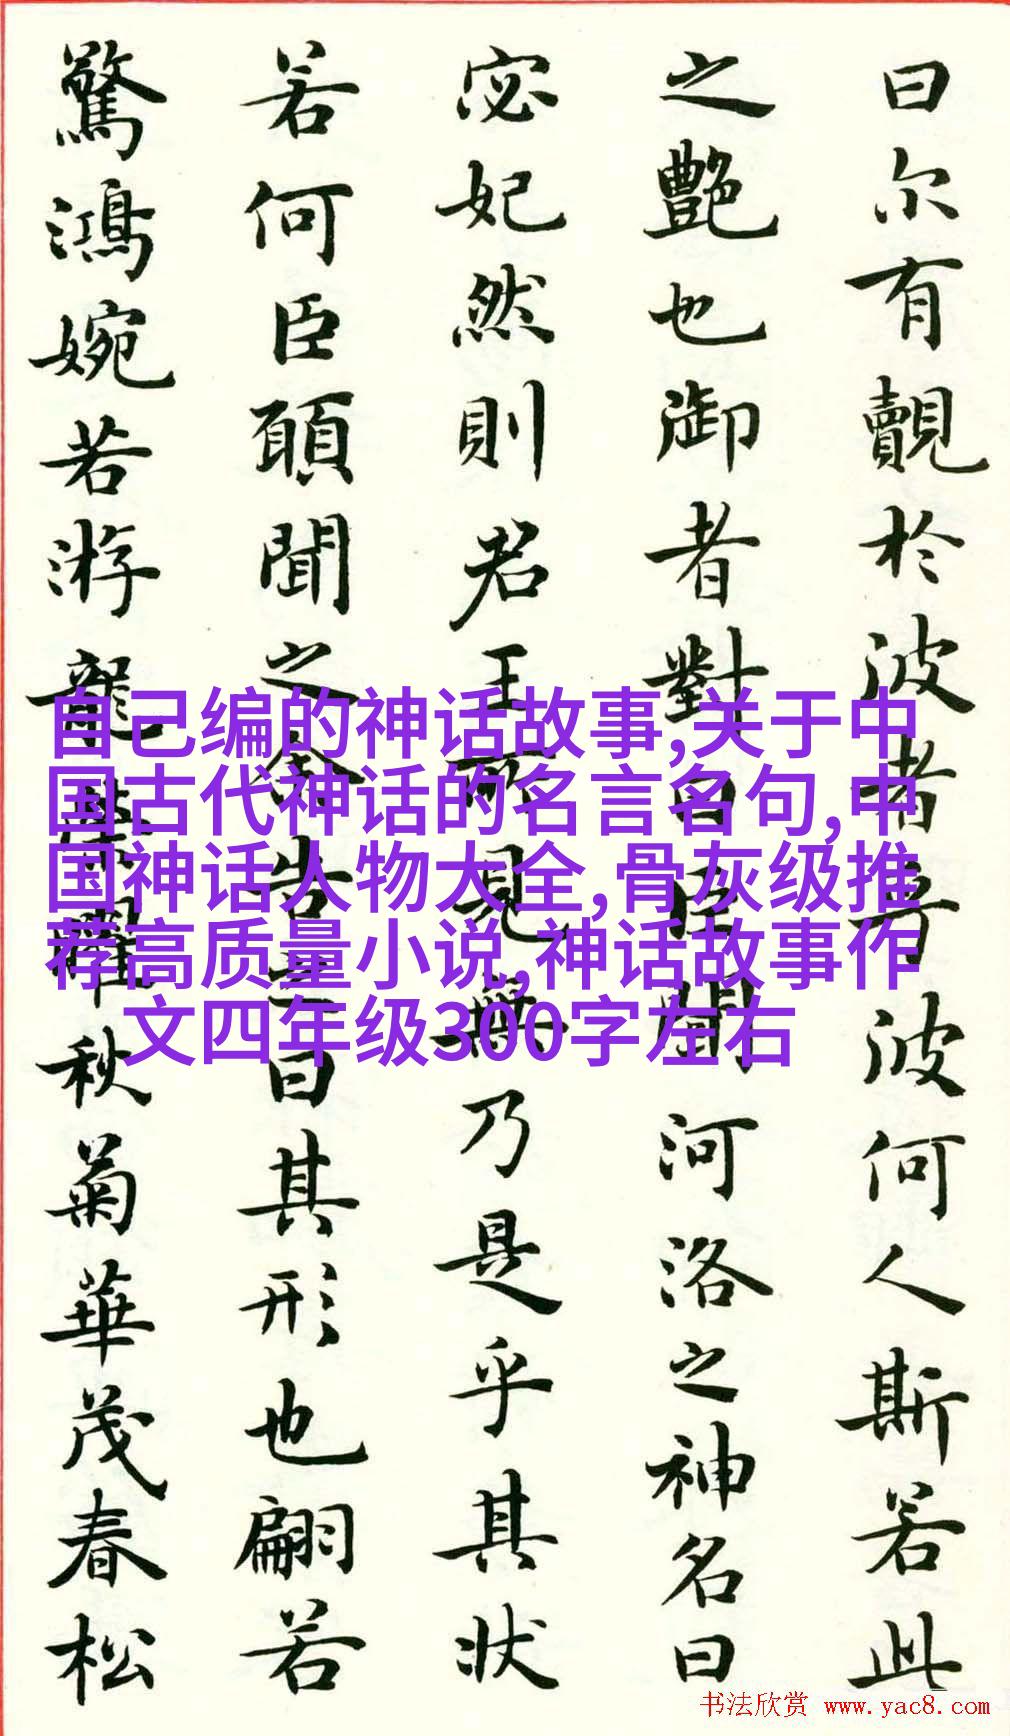 曰尔有覿於彼者乎彼何人斯若此
之艷也御者對曰臣聞河洛之神名曰
宓妃然則君王所見無乃是乎其狀
若何臣願聞之余告之曰其形也翩若
驚鴻婉若游龍榮曜秋菊華茂春松
自己编的神话故事,关于中
国古代神话的名言名句,中
国神话人物大全,骨灰级推
荐高质量小说,神话故事作
文四年级300字左右
书法欣赏 www.yac8.com